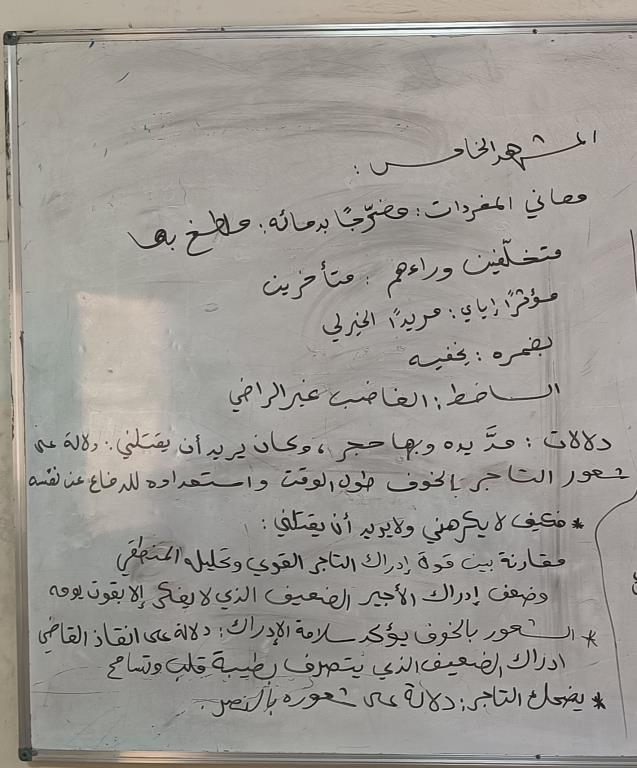 المشهد الخامس :
معاني المفردات : مضرّجًا بدمائه : ملطخ بها
متخلّفين وراءهم : متأخرين
مؤثرًا إياي : مريدًا الخير لي
يضمره : يخفيه
الساخط : الغاضب غير الراضي
دلالات : مدَّ يده وبها حجر ، وكان يريد أن يقتلني : دلالة على
شعور التاجر بالخوف طول الوقت واستعداده للدفاع عن نفسه
* فكيف لا يكرهني ولا يريد أن يقتلني :
مقارنة بين قوة إدراك التاجر القوي وتحليله المنطقي
وضعف إدراك الأجير الضعيف الذي لا يفكر إلا بقوت يومه
* الشعور بالخوف يؤكد سلامة الإدراك : دلالة على انقاذ القاضي
ادراك الضعيف الذي يتصرف بطيبة قلب وتسامح
* يضحك التاجر : دلالة على شعوره بالنصر .